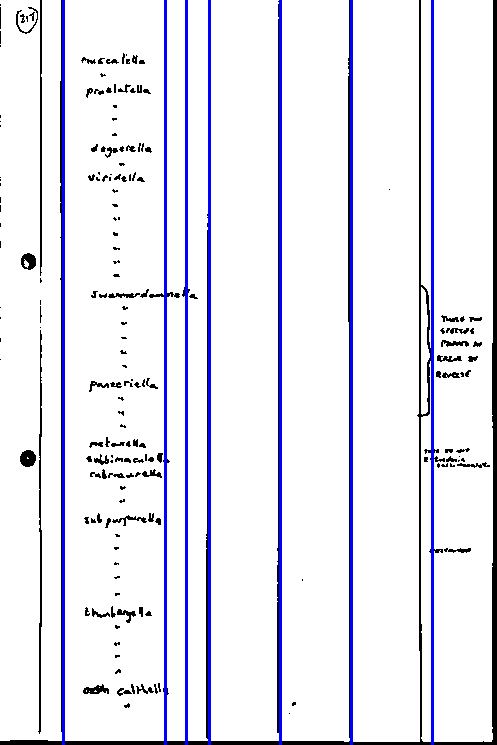 217
muscalella
"
praelatella
"
"
"
degeerella
"
viridella
"
"
"
"
"
"
"
swammerdamella
"
"
"
"
"
panzeriella
"
"
"
metaxella
subbimaculella
rubroaurella
"
"
subpurpurella
"
"
"
"
"
thunbergella
"
"
"
"
calthella
"
THESE TWO
SPECIES
IN
ERROR IN
REVERSE